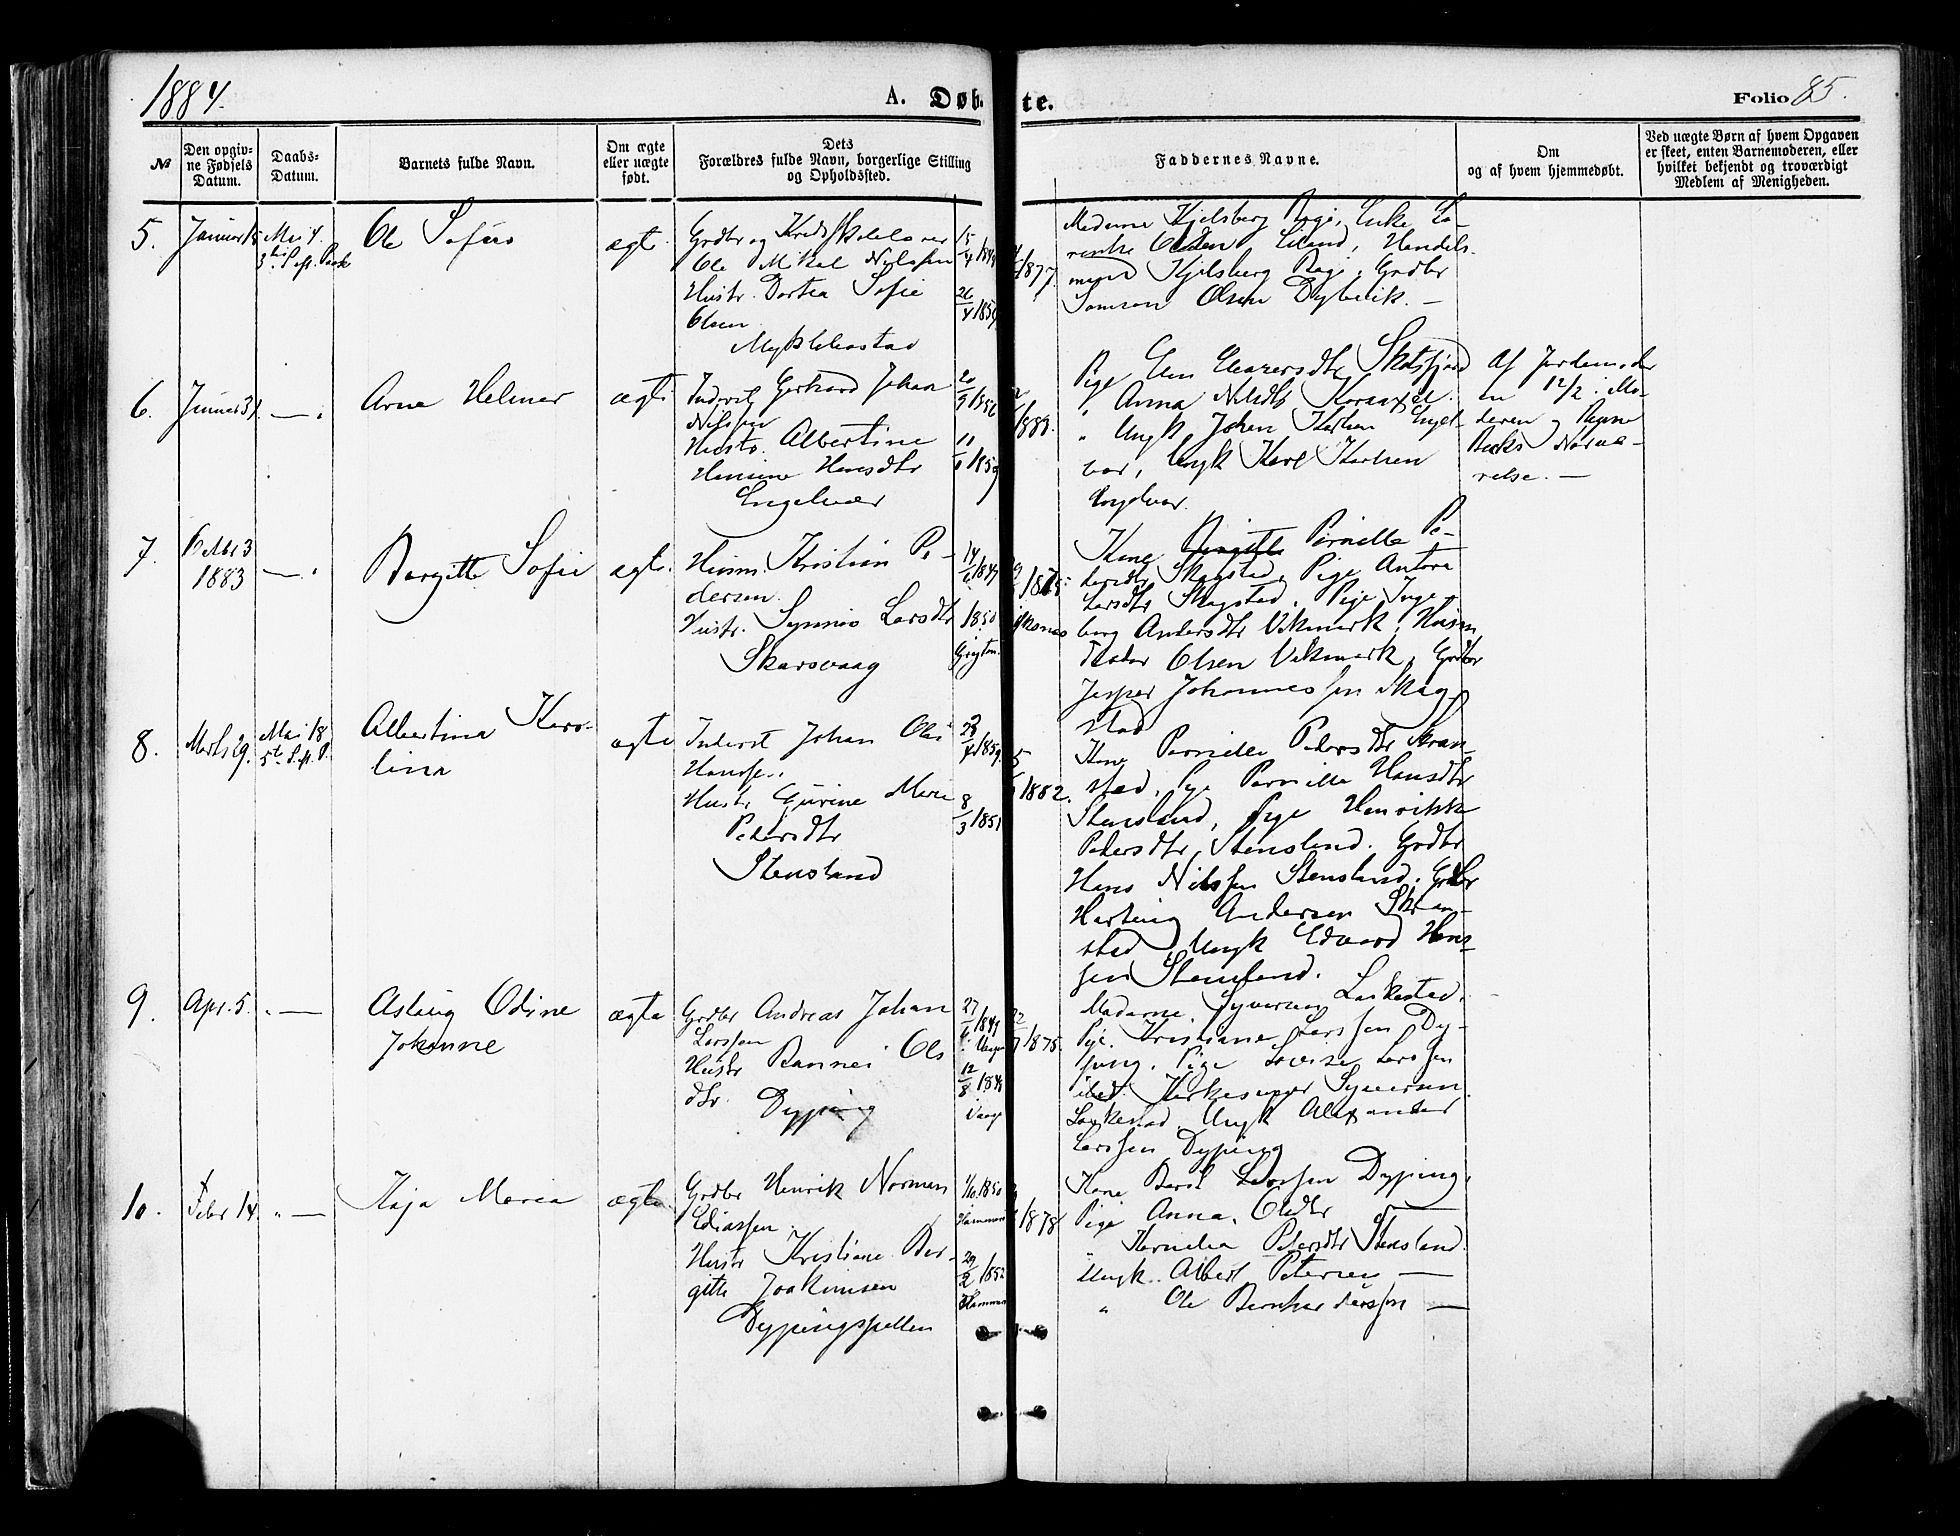 1884.
A. Døb-
te.
Folio 85.
№
Den opgiv-
ne Fødsels
Datum.
Daabs-
Datum.
Barnets fulde Navn.
Om ægte
eller uægte
født.
Dets
Forældres fulde Navn, borgerlige Stilling
og Opholdssted.
Faddernes Navne.
Om
og af hvem hjemmedøbt.
Ved uægte Børn af hvem Opgaven
er skeet, enten Barnemoderen, eller
hvilket bekjendt og troværdigt
Medlem af Menigheden.
5.
Januar 15
Mai 4.
Ole Sofus
ægte
Grdbr og
Ole Mikal Nilssen
Hustr. Dortea Sofie
Olsen
Myklebostad
15/4 1849
26/4 1854
1877.
Madame Kjelsberg Bogø, Enke La-
Olsen Handels-
mand Kjelsberg Bogø, Grdbr
Samson Olsen Dybvik. —
6.
Januar 31.
— .
Arne Helmer
ægte
Inderst Gerhard Johan
Nilssen
Hustr. Albertine
Hansine Hansdtr
Engelvær
20/9 1856
1859
1883.
Pige Elen
" Anna Nilsdtr
" Ungk Johan Karlsen Engel-
vær, Ungk Karl Karlsen
Engelvær.
Af Jordemode-
ren 12/2 i Mo-
deren og
Nærvæ-
relse. —
7.
1883
— .
Bergitte Sofie
ægte
Husm. Kristian Pe-
dersen
Hustr. Synnøv Larsdtr
Skarsvaag
14/6 1847
1850
1875.
Kone Pernille Pe-
dersdtr Skagstad, Pige Antora
Larsdtr Skagstad, Pige Inge-
borg Andersdtr Vikmark, Husm
Olsen Vikmark, Grdbr
Jesper Johannessen Skag-
stad
8.
Marts 29.
Mai 18
5te S. ft. P.
Albertina Karo-
lina
ægte
Inderst Johan Olai
Hanssen
Hustr. Gurine Marie
Pedersdtr
Stensland
23/4 1859
8/3 1851
1882.
Kone Pernille Pedersdtr Skran-
stad, Pige Pernille Hansdtr
Stensland, Pige Henrikke
Pedersdtr, Stensland. Grdbr
Hans Nilssen Stensland, Grdbr
Hartvig Andersen Skran-
stad, Ungk Edvard Hans-
sen Stensland.
9.
Apr. 5.
" —
Aslaug Odine
Johanne
ægte
Grdbr Andreas Johan
Larssen
Hustr Rannei Ols
dtr.
Dyping
27/6 1849
12/8 1848
1875.
Madame Syversen Laskestad,
Pige Kristiane Larssen Dy-
ping, Pige Lovise Larssen
ibid. Kirkesanger Syversen
Laskestad Ungk Alexander
Larssen Dyping
10.
Febr 14.
" —
Kaja Maria
ægte
Grdbr Henrik Norman
Ediassen
Hustr Kristiane Ber-
gitte Joakimsen
Dypingspollen
1/10. 1850
Hammerø
29/2 1852
Hammerø
1878.
Kone Berit Larssen Dyping,
Pige Anna Olsdtr —
" Kornelia Pedersdtr Stensland
Ungk. Albert Petersen —
" Ole Bernhard Larssen —